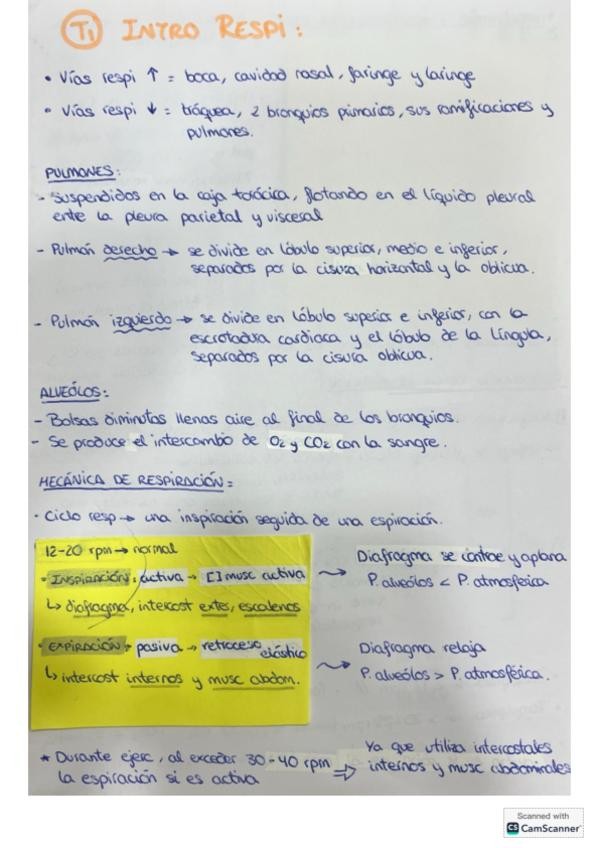 T1 INTRO RESPI:
• Vías respi ↑ = boca, cavidad nasal, faringe y laringe
• Vías respi ↓ = tráquea, 2 bronquios primarios, sus ramificaciones y
pulmones.
PULMONES:
- Suspendidos en la caja torácica, flotando en el líquido pleural
ente la pleura parietal y visceral
- Pulmón derecho → se divide en lóbulo superior, medio e inferior,
separados por la cisura horizontal y la oblicua.
- Pulmón izquierdo → se divide en lóbulo superior e inferior, con la
escrotadura cardiaca y el lóbulo de la Língula,
separados por la cisura oblicua.
ALVEÓLOS:
- Bolsas diminutas llenas aire al final de los bronquios.
- Se produce el intercambio de O₂ y CO₂ con la sangre.
MECÁNICA DE RESPIRACIÓN:
· Ciclo resp → una inspiración seguida de una espiración.
12-20 rpm → normal
• INSPIRACIÓN: activa → [] musc activa
↳ diafragma, intercost extes, escalenos
→ Diafragma se contrae y aplana
P. alveólos < P. atmosferica
• EXPIRACIÓN: pasiva → retroceso elástico
↳ intercost internos y musc abdom.
→ Diafragma relaja
P. alveólos > P. atmosférica.
* Durante ejerc, al exceder 30-40 rpm
la espiración si es activa
⇒ Ya que utiliza intercostales
internos y musc abdominales
Scanned with
CS CamScanner